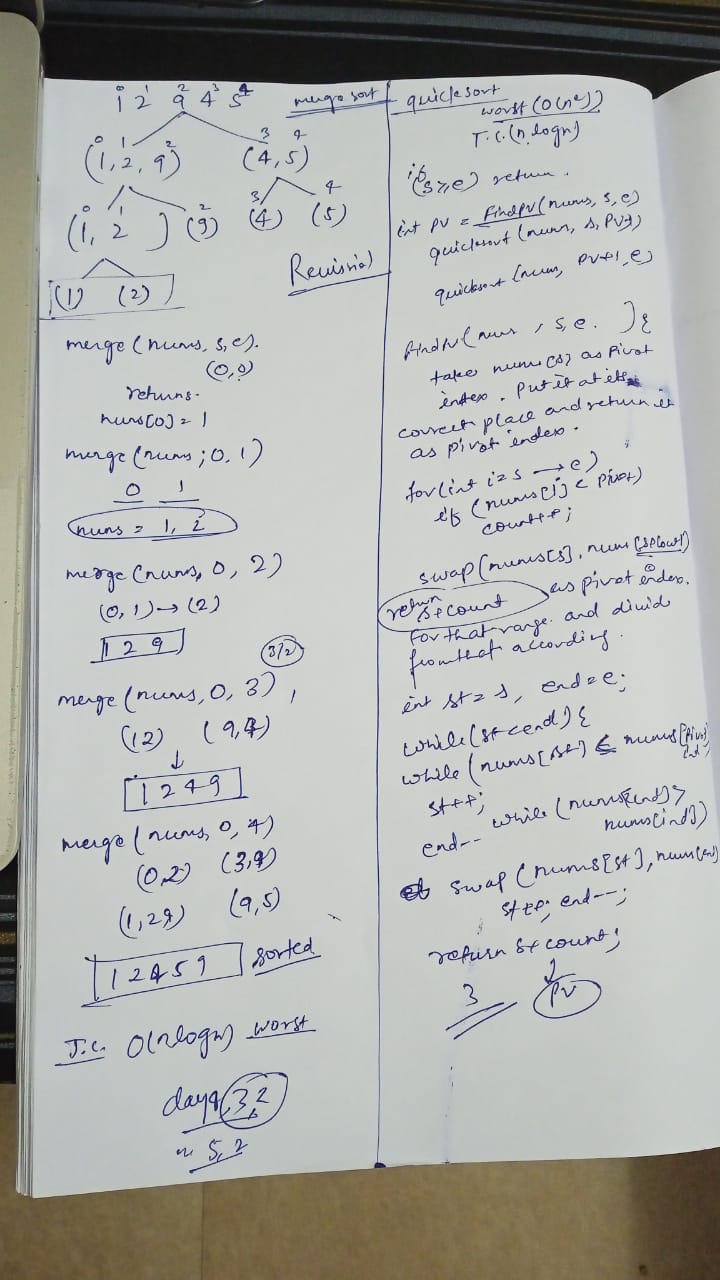 0 1 2 3 4
1 2 9 4 5
merge sort
0 1 2
(1, 2, 9)
3 4
(4, 5)
0 1
(1, 2)
2
(9)
3
(4)
4
(5)
(1) (2)
Revision
merge (nums, s, e).
(0,0)
returns.
nums[0] = 1
merge (nums; 0, 1)
0 1
nums = 1, 2
merge (nums, 0, 2)
(0, 1) → (2)
1 2 9
3/2
merge (nums, 0, 3),
(12) (9,4)
↓
1 2 4 9
merge (nums, 0, 4)
(0,2) (3,4)
(1,29) (9,5)
1 2 4 5 9 sorted
T.C. O(nlogn) worst
days 3,2
5, 2
quicksort
worst (O(n²))
T.C. (n logn)
if
(s>=e) return.
int pv = findpv (nums, s, e)
quicksort (nums, s, pv-1)
quicksort (nums, pv+1, e)
findpv (nums, s, e. ) {
take nums[s] as pivot
index. put it at its
correct place and return it
as pivot index.
for (int i=s → e)
if (nums[i] < pivot)
count++;
swap (nums[s], nums[s+count])
return
s+count as pivot index.
for that range. and divide
from that according.
int st = s, end = e;
while (st < end) {
while (nums[st] ≤ nums[pivot
ind]
st++;
while (nums[end] >
nums[ind])
end--
swap (nums[st], nums[end)
st++; end--;
return s+count;
↓
3 pv